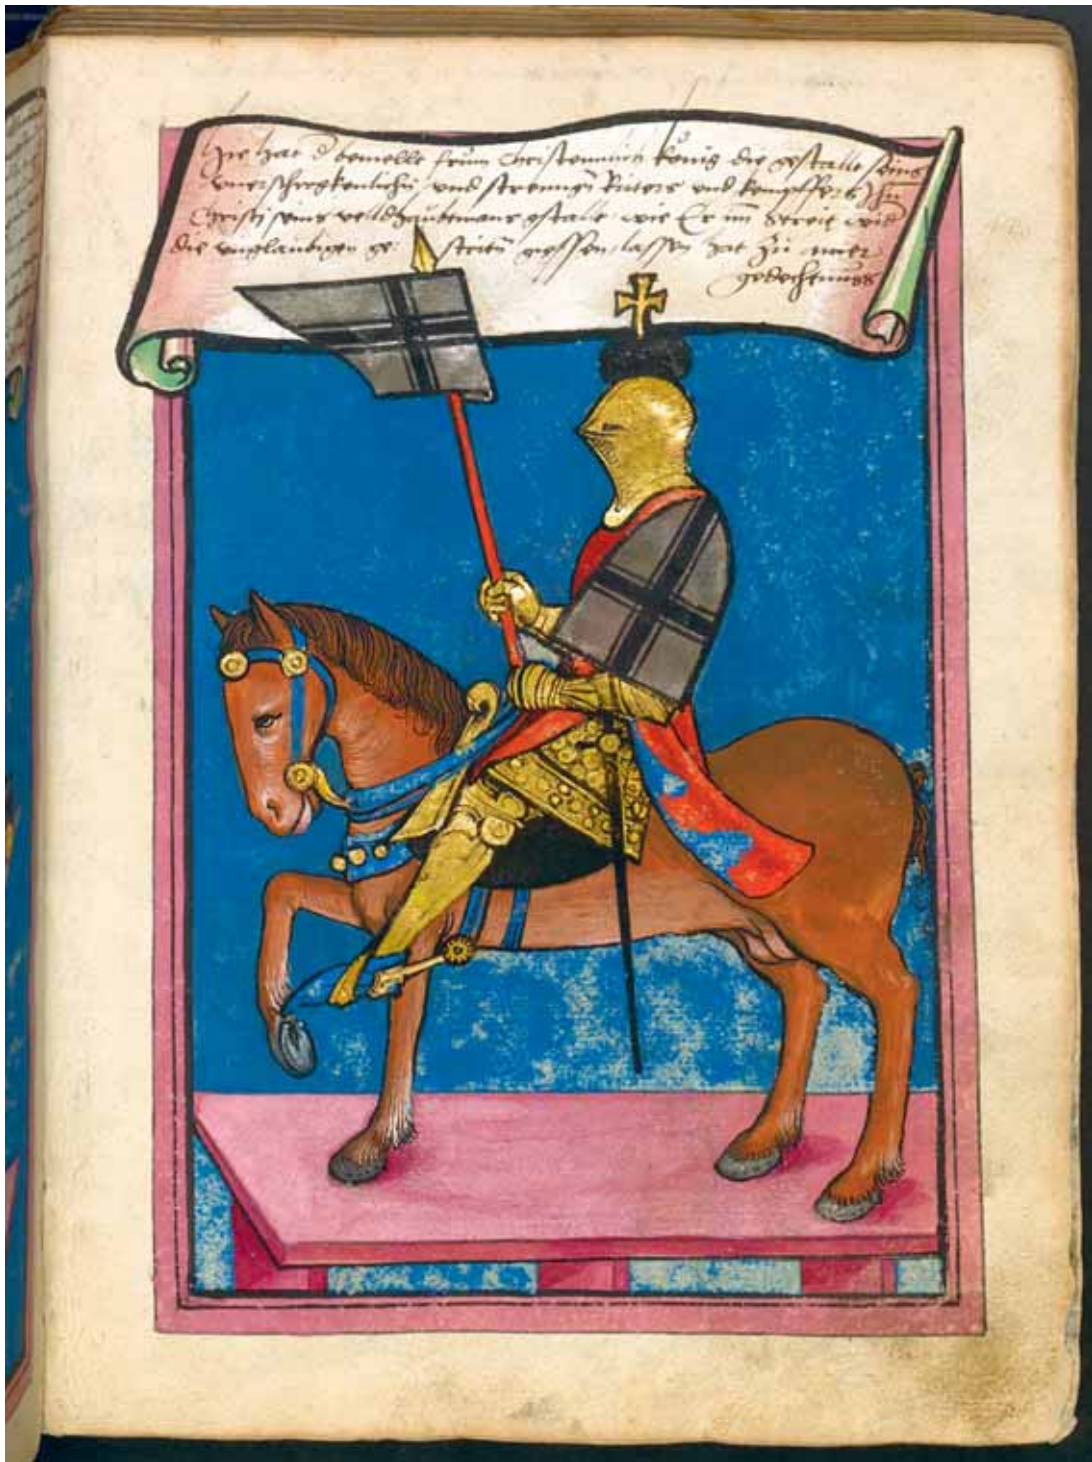 Hie hat d bemelte frum Christennlich König die gestallt seins
vnerschrockenlichñ vnd strenngñ Ritters vnd kempffers Jhũ
Christi seins velldhaubtmans gstalt wie Er im streyt wid
die vnglaubigen ge: stritñ giessen lassen hat zu ewiger
gedechtnuss